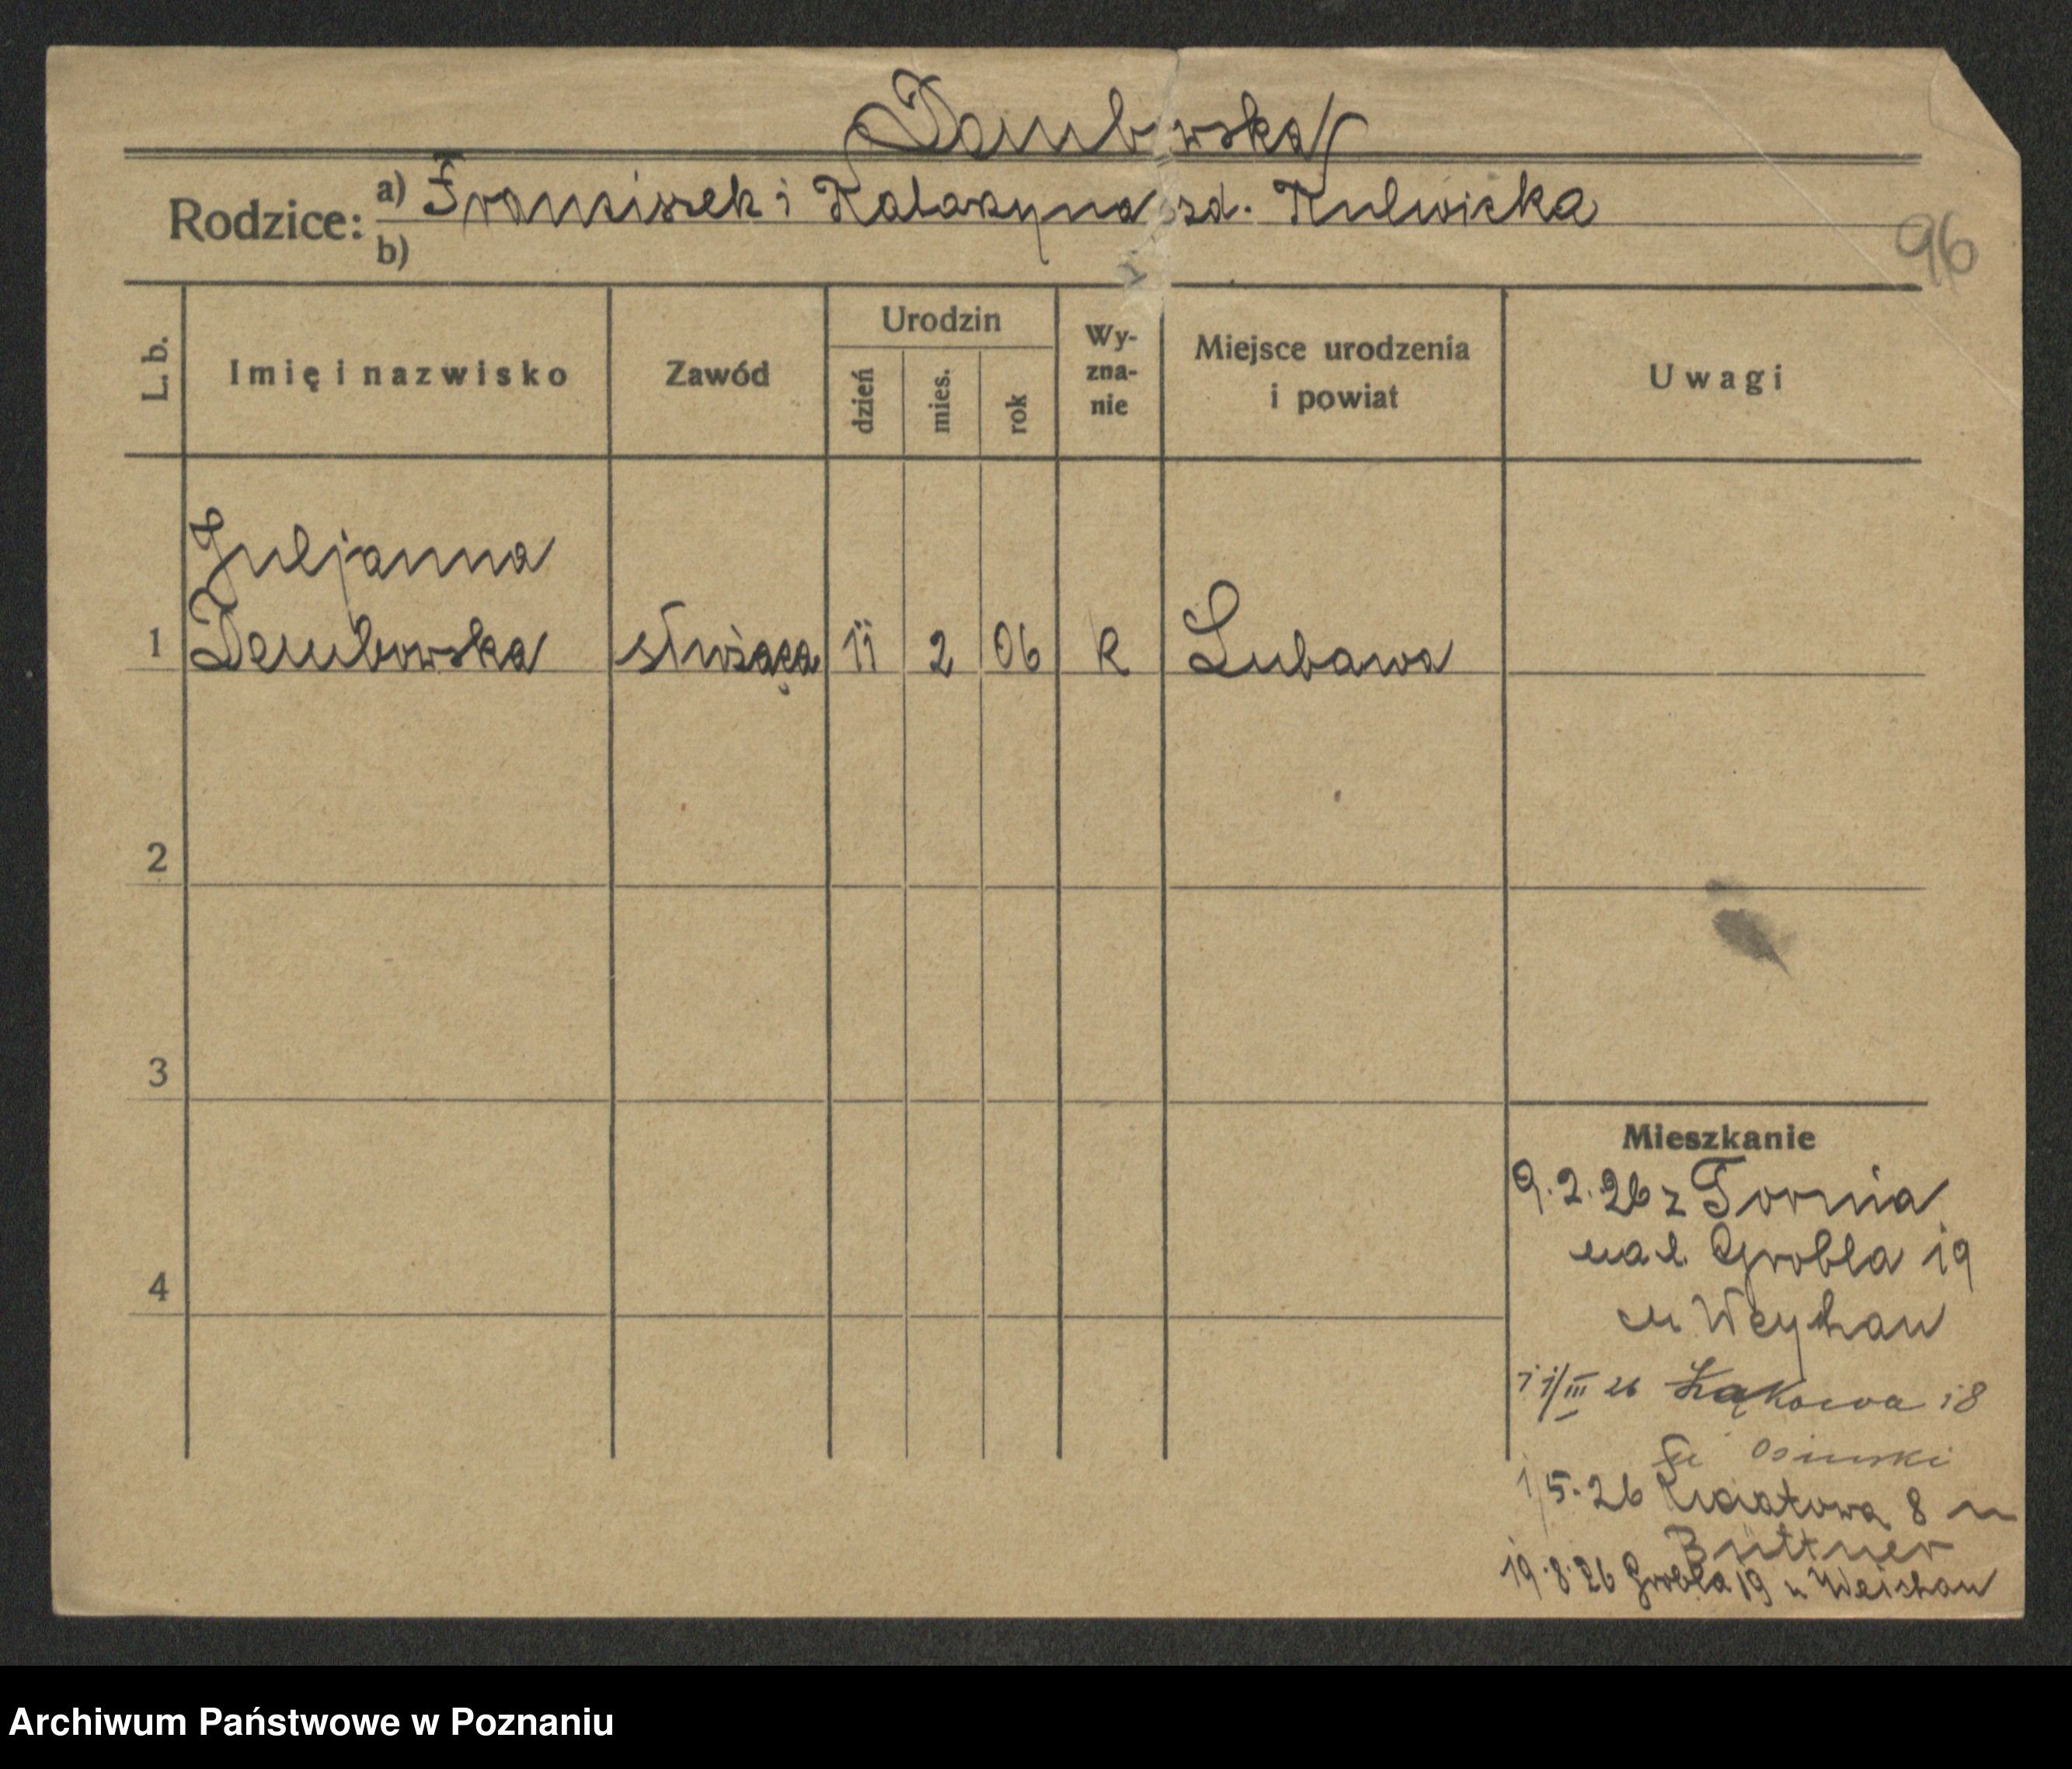 Dembowska
Rodzice: a) Franciszek i Katarzyna zd. Kulwicka
b)
96
L. b.
Imię i nazwisko
Zawód
Urodzin
dzień
mies.
rok
Wy-
zna-
nie
Miejsce urodzenia
i powiat
Uwagi
Juljanna
1 Dembowska służąca 11 2 06 R Lubawa
2
3
4
Mieszkanie
9.2.26 z
Grobla 19
u Weyhan
11/III 26 Łąkowa 18
Osinski
1/5.26 Kwiatowa 8 u
Büttner
19.8.26 Grobla 19 u
Archiwum Państwowe w Poznaniu